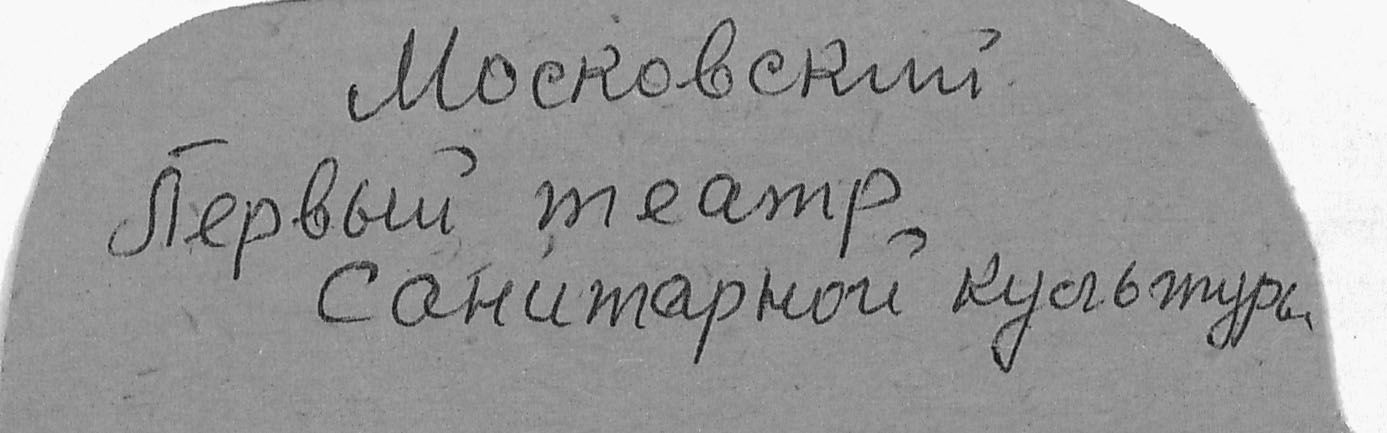 Московский
Первый театр
Санитарной культуры